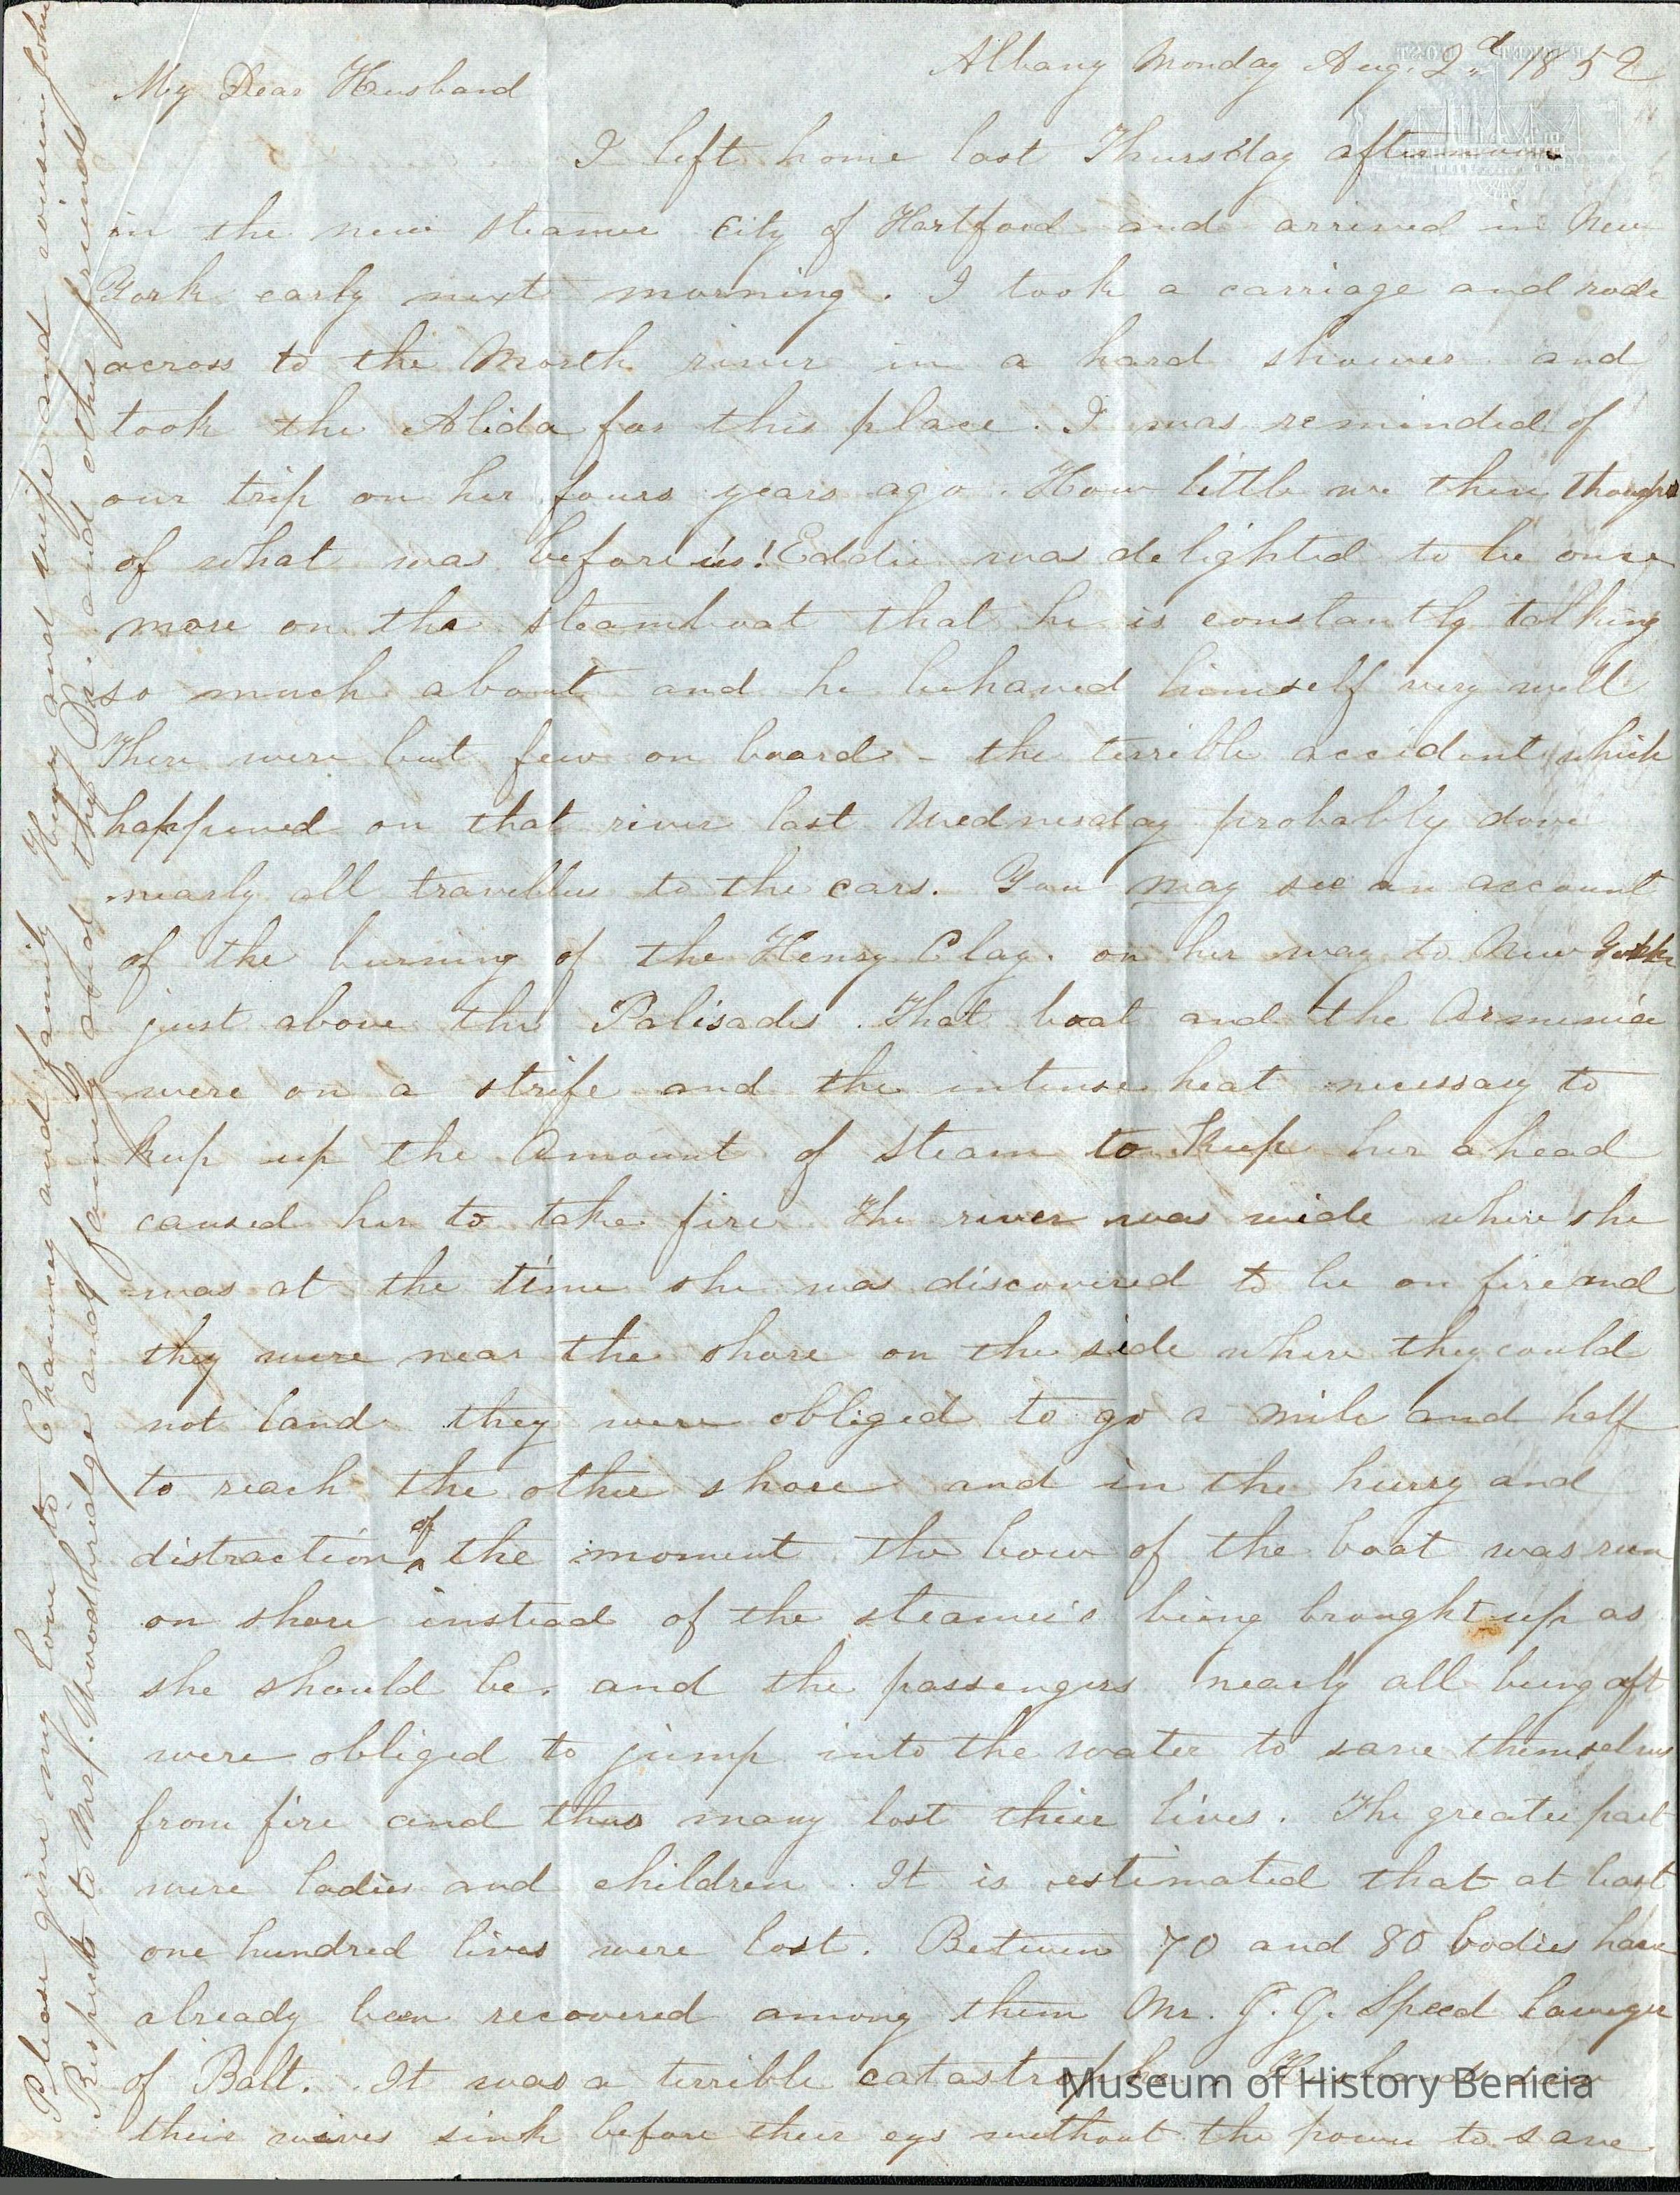 Albany Monday Aug. 2d 1852
My Dear Husband
I left home last Thursday afternoon
in the new steamer City of Hartford and arrived in New
York early next morning. I took a carriage and rode
across to the North river in a hard shower and
took the Alida for this place. I was reminded of
our trip on her fours years ago. How little we then thought
of what was before us! Eddie was delighted to be once
more on the steamboat that he is constantly talking
so much about and he behaved himself very well
There were but few on board - the terrible accident which
happened on that river last Wednesday probably dove
nearly all travellers to the cars. You may see an account
of the burning of the Henry Clay. on her way to New York
just above the Palisades. That boat and the Armenia
were on a strife and the intense heat necessary to
keep up the amount of steam to keep her ahead
caused her to take fire. The river was wide where she
was at the time she was discovered to be on fire and
they were near the shore on the side where they could
not land they were obliged to go a mile and half
to reach the other shore and in the hurry and
distraction of the moment the bow of the boat was run
on shore instead of the steamer's being brought up as
she should be. and the passengers nearly all being aft
were obliged to jump into the water to save themselves
from fire and thus many lost their lives. The greater part
were ladies and children. It is estimated that at least
one hundred lives were lost. Between 70 and 80 bodies have
already been recovered among them Mr. J. J. Speed lawyer
of Balt. It was a terrible catastrophe. Husbands saw
their wives sink before their eys without the power to save.
Please give my love to Chauncey and family Henry and wife and cousin John
Respects to Mrs. Woodbridge and family about the Dr. and other friends
Museum of History Benicia